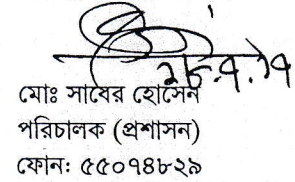 ২৮.৭.১৭
মোঃ সাবের হোসেন
পরিচালক (প্রশাসন)
ফোন: ৫৫০৭৪৮২৯